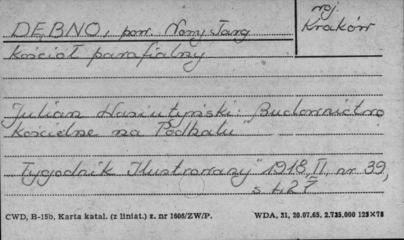 woj.
DĘBNO, pow. Nowy Targ Kraków
kościół parafialny
Julian Hasiutyński: Budownictwo
kościelne na Podhalu"
Tygodnik Ilustrowany" 1918, II, nr 39,
s. 427
CWD, B-15b, Karta katal. (z liniat.) z. nr 1606/ZW/P. WDA, 31, 20.07.65. 2.735.000 125×75